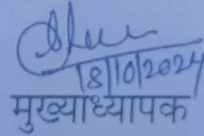 18/10/2024
मुख्याध्यापक